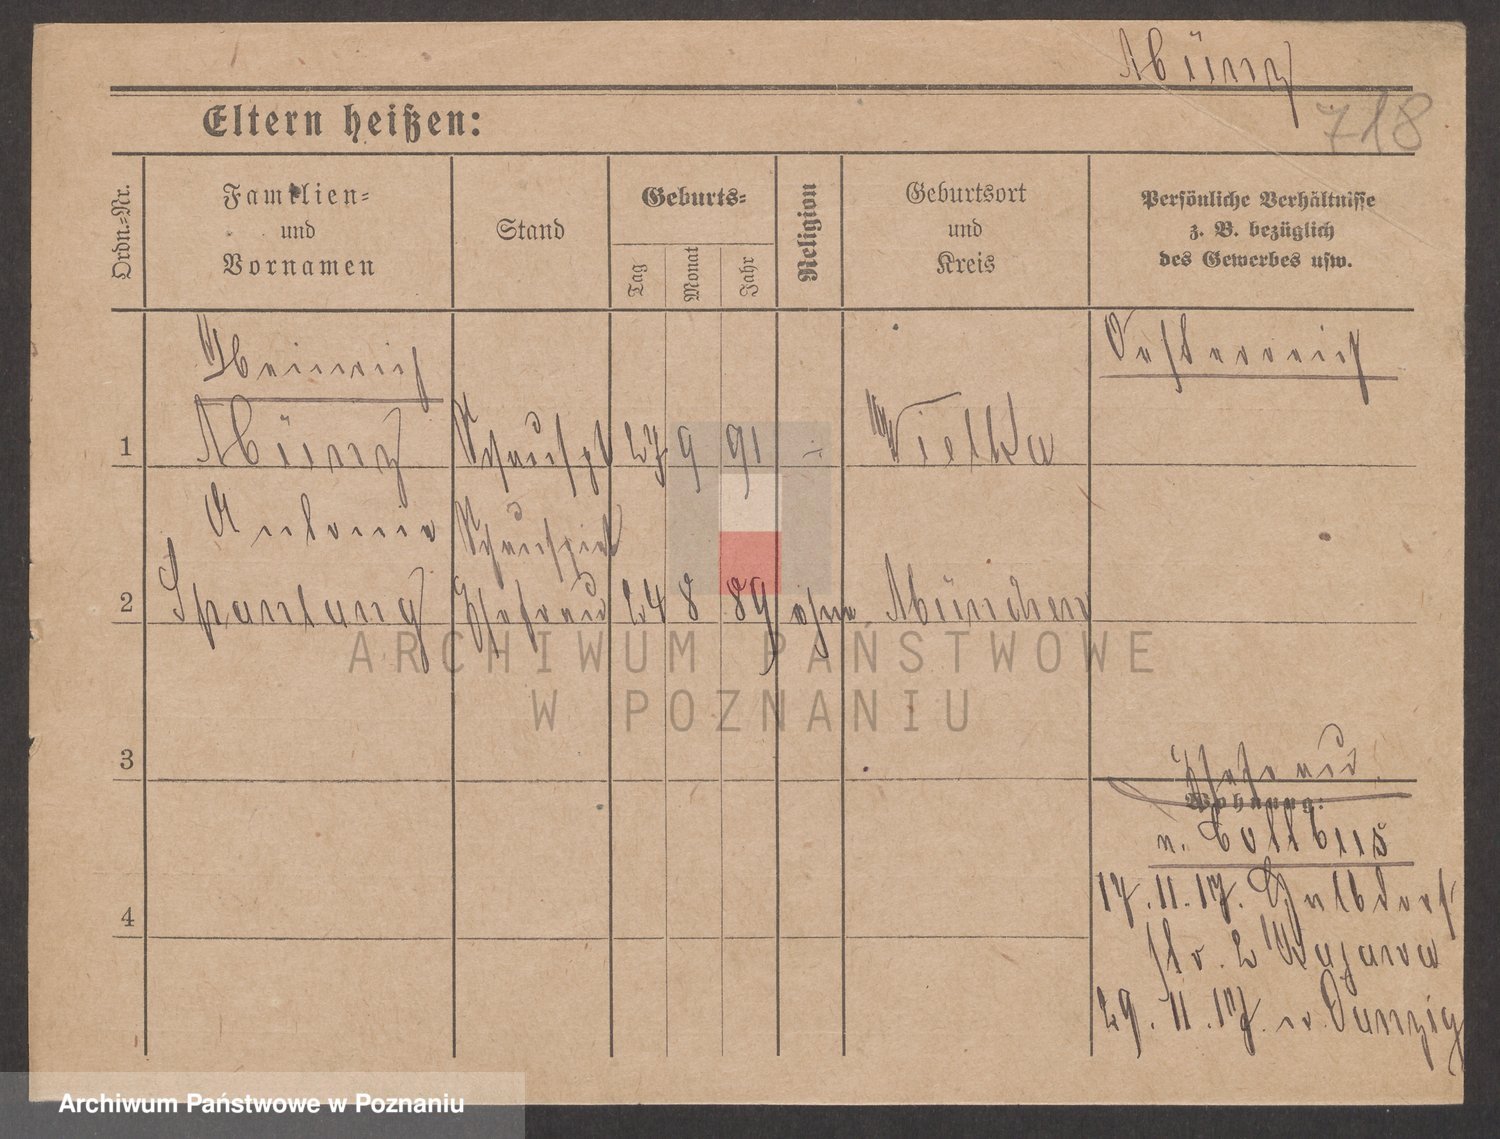 Münz
718
Eltern heißen:
Ordn.-Nr.
Familien-
und
Vornamen
Stand
Geburts-
Tag
Monat
Jahr
Religion
Geburtsort
und
Kreis
Persönliche Verhältnisse
z. B. bezüglich
des Gewerbes usw.
Heinrich
Oesterreich
1 Münz Schauspl 27 9 91 Wielka
Antonie Schauspiel
2 Ehefrau 24 8 89 ohne München
3
Ehefrau
Wohnung:
v. Cottbus
4
17. 11. 17.
str. 2
29. 11. 17. n. Danzig
ARCHIWUM PAŃSTWOWE
W POZNANIU
Archiwum Państwowe w Poznaniu